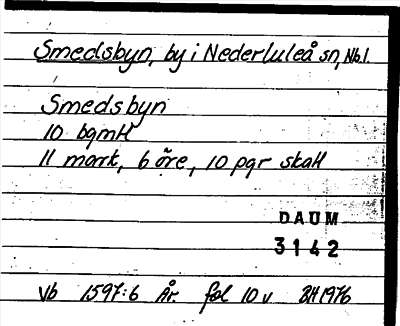 Smedsbyn, by i Nederluleå sn, Nb l.
Smedsbyn
10 bqmH
11 mark, 6 öre, 10 pgr skatt
DAUM
3142
Vb 1597:6 År fol 10 v BH 1976